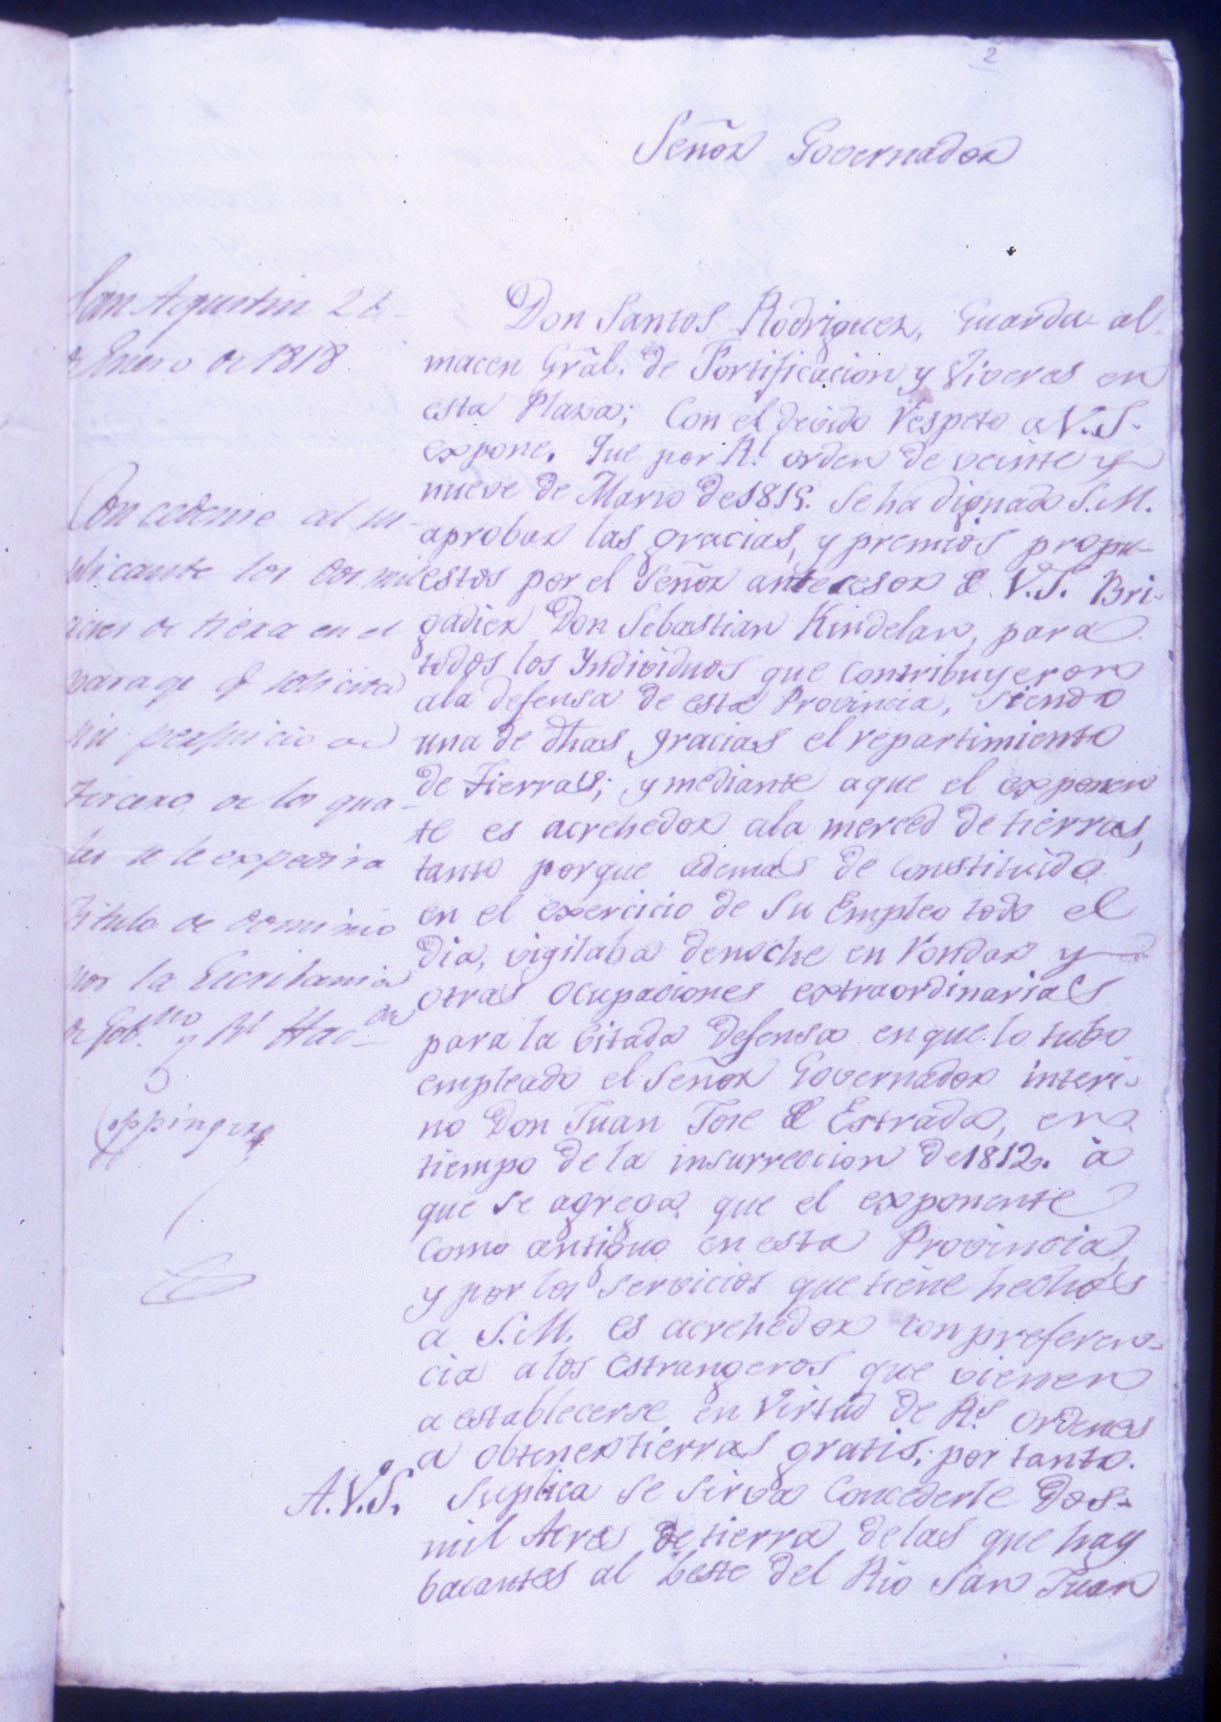 2
Señor Governador
San Agustin 2
de Enero de 1818
Concedense al su-
plicante los dos mil
acres de tierra en el
parage q̃ solicita
sin perjuicio de
tercero, de los qua-
les se le expedira
titulo de dominio
por la Escribania
de Gob.no y Rl Hac.da
Coppinger
Don Santos Rodriguez, Guarda al-
macen Grãl. de Fortificacion y Viveres en
esta Plaza; Con el devido respeto a V.S.
expone. Que por Rl. orden de veinte y
nueve de Marzo de 1815. Se ha dignado S.M.
aprobar las gracias, y premios propu-
estos por el Señor antecesor de V.S. Bri-
gadier Don Sebastian Kindelan, para
todos los Yndividuos que contribuyeron
ala defensa de esta Provincia, Siendo
una de dhãs gracias el repartimiento
de Tierras; y mediante aque el exponen
te es acrehedor ala merced de tierras,
tanto porque ademas de constituido
en el exercicio de Su Empleo todo el
dia, vigilaba denoche en Rondar y
otras ocupaciones extraordinarias
para la Citada Defensa en que lo tubo
empleado el Señor Governador interi-
no Don Juan Jose de Estrada, en
tiempo de la insurreccion de 1812. à
que se agrega que el exponente
Como antiguo en esta Provincia,
y por los servicios que tiene hechos
a S.M. es acrehedor con preferen-
cia a los Estrangeros que vienen
a establecerse en Virtud de Rs. ordenes
a obtener tierras gratis; por tanto.
A.V.S. Suplica se sirva Concederle Dos-
mil Acres de tierra de las que hay
bacantes al Leste del Rio San Juan